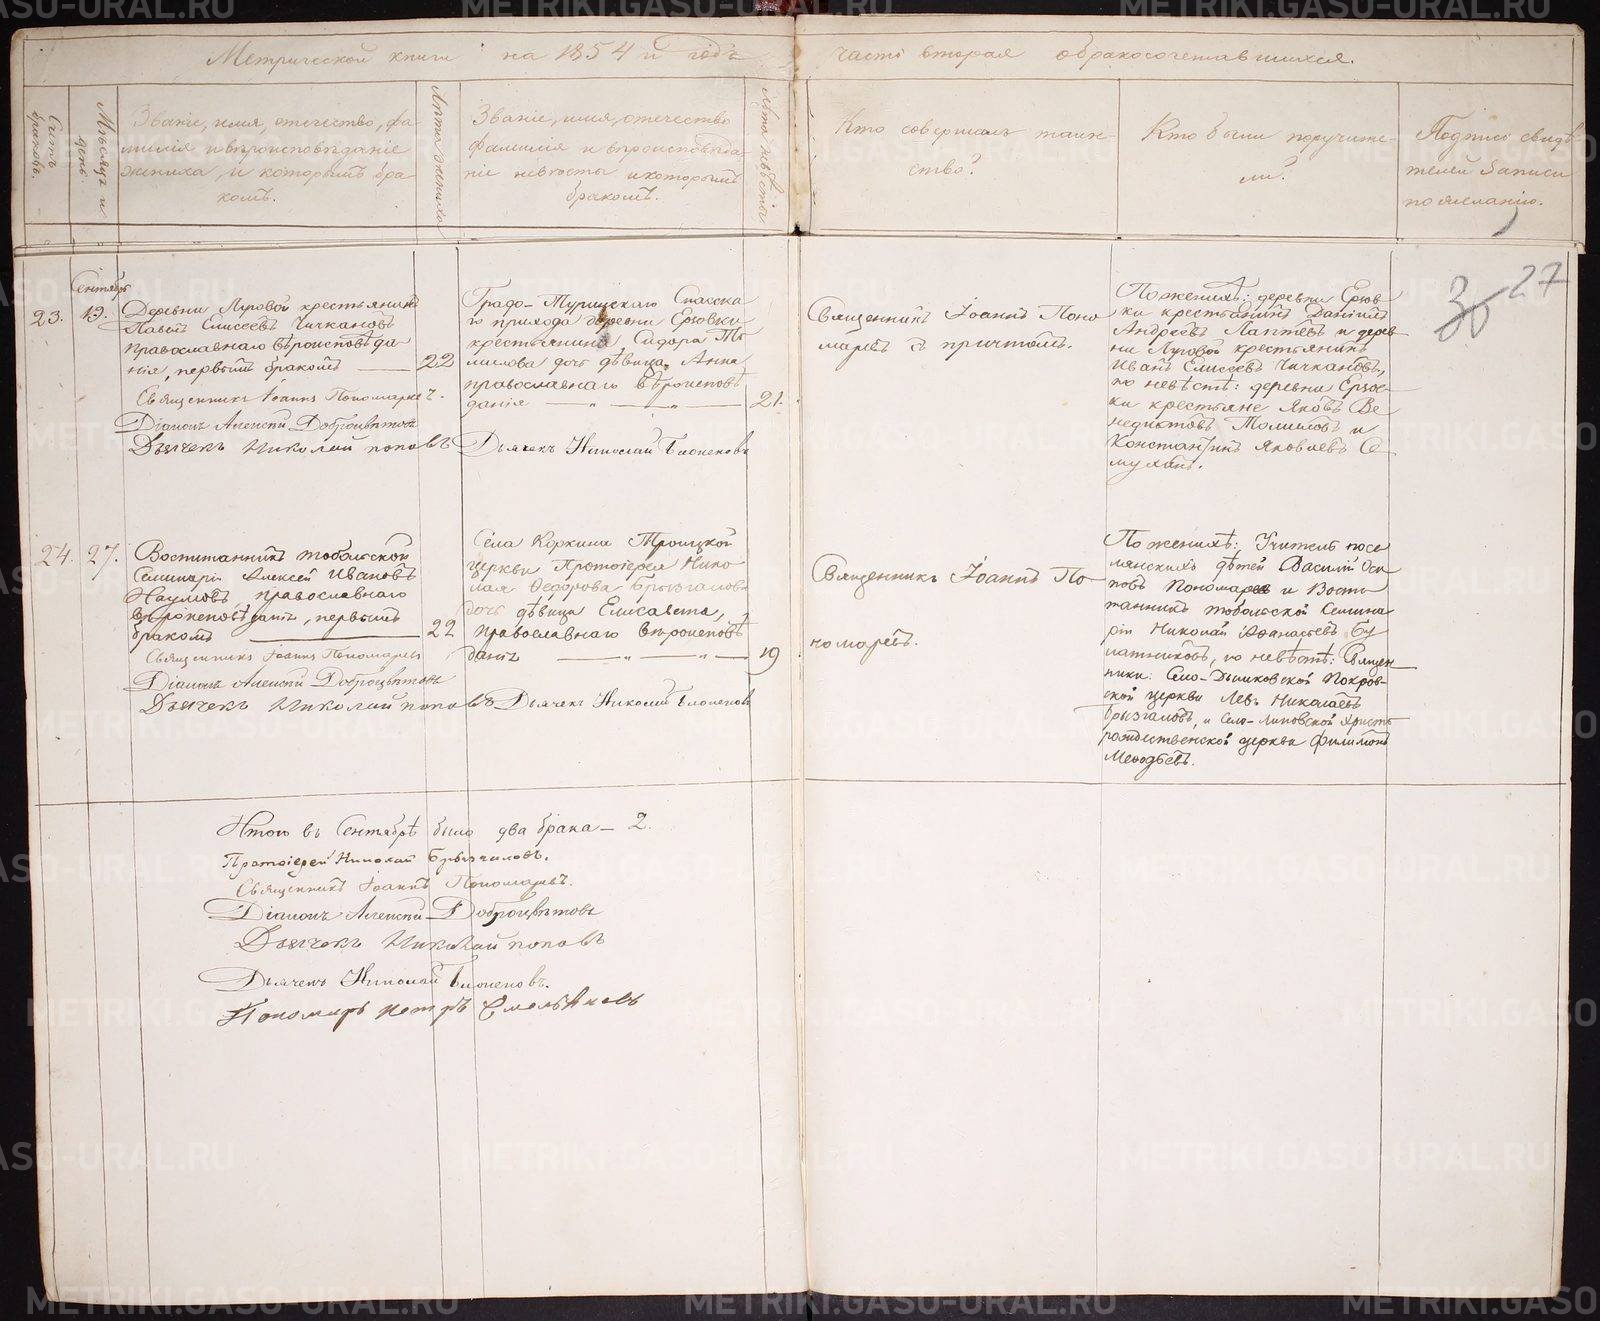 Метрической книги на 1854й годъ часть вторая о бракосочетавшихся.
Счетъ браковъ.
Мѣсяцъ и день.
Званіе, имя, отечество, фа-
милія и вѣроисповѣданіе
жениха, и которымъ бра-
комъ.
Лѣта жениха
Званіе, имя, отечество
фамилія и вѣроисповѣда-
ніе невѣсты и которымъ
бракомъ.
Лѣта невѣсты
Кто совершалъ таин-
ство?
Кто были поручите-
ли?
Подпись свидѣ-
телей записи
по желанію.
27
Сентябрь
23. 19.
Деревни Луговой крестьянинъ
Павелъ Елисеевъ Чичкановъ
православнаго вѣроисповѣда-
нія, первымъ бракомъ — 22
Священникъ Іоаннъ Пономаревъ.
Діаконъ Алексѣй Доброцвѣтовъ
Дьячекъ Николай поповъ
Градо-Туринскаго Спасска
го прихода деревни Ерзовки
крестьянина Сидора То
милова дочь дѣвица Анна
православнаго вѣроисповѣ
данія — „ — „ — 21.
Дьячекъ Николай
Священникъ Іоаннъ Поно
маревъ съ причтомъ.
По женихѣ: деревни Ерзов-
ки крестьянинъ Даніилъ
Андреевъ Лаптевъ и дерев-
ни Луговой крестьянинъ
Иванъ Елисеевъ Чичкановъ,
по невѣстѣ: деревни Ерзов-
ки крестьяне Яковъ Ве
недиктовъ Томиловъ и
Константинъ Яковлевъ Се
мухинъ.
24. 27.
Воспитанникъ тобольской
Семинаріи Алексей Ивановъ
Наумовъ православнаго
вѣроисповѣданія, первымъ
бракомъ — 22
Священникъ Іоаннъ Пономаревъ
Діаконъ Алексѣй Доброцвѣтовъ
Дьячекъ Николай поповъ
Села Коркина Троицкой
церкви Протоіерея Нико
лая Ѳедорова Брызгалова
дочь дѣвица Елисавета,
православнаго вѣроисповѣ
данія — „ — „ — 19
Дьячекъ Николай
Священникъ Іоаннъ По-
номаревъ.
По женихѣ: Учитель посе
лянскихъ дѣтей Василій Оси
повъ Пономаревъ и Воспи
танникъ тобольской Семина
ріи Николай Аѳанасьевъ Бу
латниковъ, по невѣстѣ: Священ-
ники: Село-Дымковской Покров-
ской церкви Левъ Николаевъ
Брызгаловъ, и Село-Липовской Христо
рождественской церкви Филимонъ
Меѳодьевъ.
Итого въ Сентябрѣ было два брака — 2.
Протоіерей Николай Брызгаловъ.
Священникъ Іоаннъ Пономаревъ.
Діаконъ Алексѣй Доброцвѣтовъ
Дьячекъ Николай поповъ
Дьячекъ Николай
Пономарь петръ
METRIKI.GASO-URAL.RU